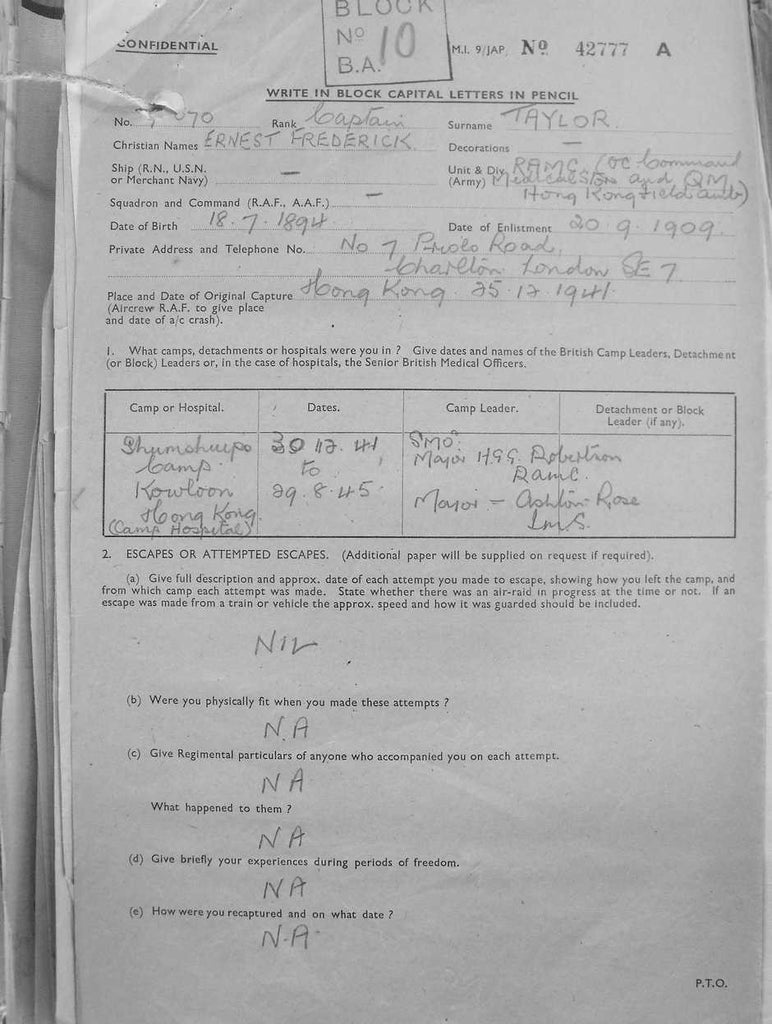 BLOCK
Nº 10
B.A.
CONFIDENTIAL
M.I. 9/JAP. Nº 42777 A
WRITE IN BLOCK CAPITAL LETTERS IN PENCIL
No. 070 Rank Captain Surname TAYLOR.
Christian Names ERNEST FREDERICK. Decorations —
Ship (R.N., U.S.N. or Merchant Navy) — Unit & Div. (Army) RAMC. (OC Command
Medical Store and QM
Hong Kong Field amb)
Squadron and Command (R.A.F., A.A.F.) —
Date of Birth 18.7.1894 Date of Enlistment 20.9.1909.
Private Address and Telephone No. No 7 Road,
Charlton London SE 7
Place and Date of Original Capture Hong Kong. 25.12.1941.
(Aircrew R.A.F. to give place
and date of a/c crash).
1. What camps, detachments or hospitals were you in ? Give dates and names of the British Camp Leaders, Detachment
(or Block) Leaders or, in the case of hospitals, the Senior British Medical Officers.
Camp or Hospital. Dates. Camp Leader. Detachment or Block
Leader (if any).
Shumshuipo 30.12.41 SMO.
Camp. to Major H.G.G. Robertson
RAMC.
Kowloon 29.8.45. Major - Ashton Rose
Hong Kong. I.M.S.
(Camp Hospital)
2. ESCAPES OR ATTEMPTED ESCAPES. (Additional paper will be supplied on request if required).
(a) Give full description and approx. date of each attempt you made to escape, showing how you left the camp, and
from which camp each attempt was made. State whether there was an air-raid in progress at the time or not. If an
escape was made from a train or vehicle the approx. speed and how it was guarded should be included.
NIL
(b) Were you physically fit when you made these attempts ?
N.A
(c) Give Regimental particulars of anyone who accompanied you on each attempt.
NA
What happened to them ?
NA
(d) Give briefly your experiences during periods of freedom.
NA
(e) How were you recaptured and on what date ?
N.A.
P.T.O.